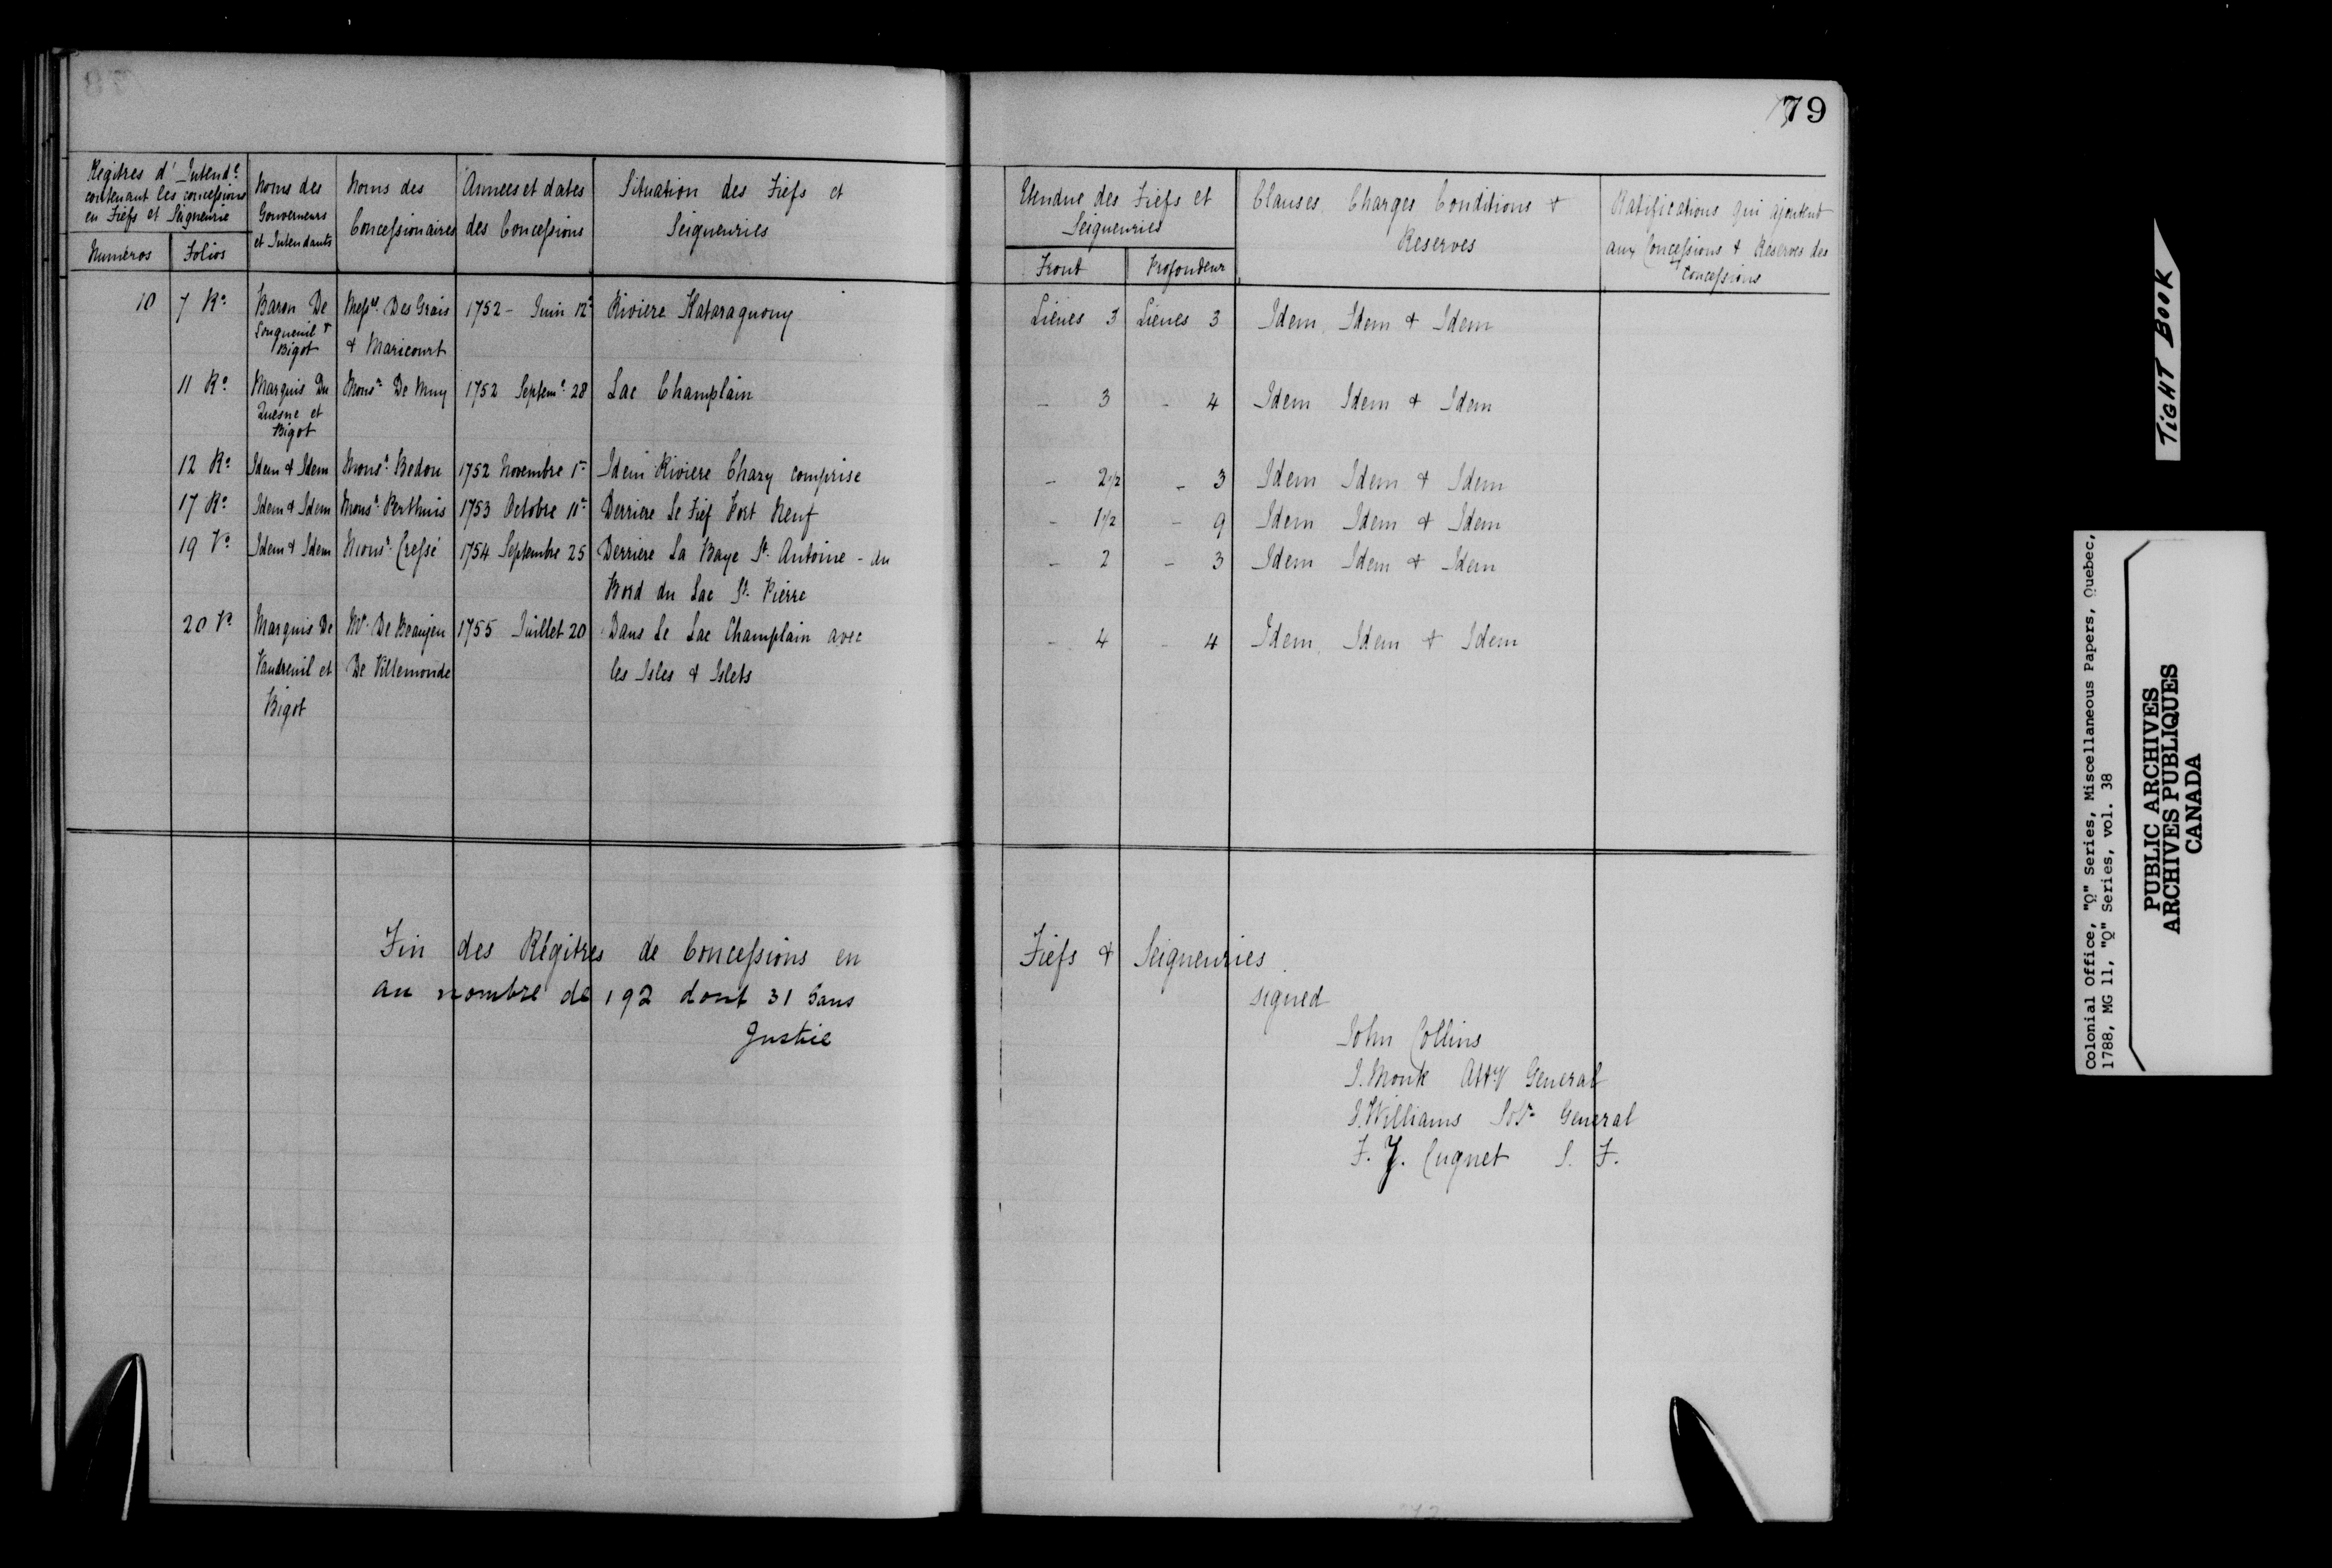 79
Regitres d' Intend.ce
contenant les concessions
en Fiefs et Seigneurie
Numéros
Folios
Noms des
Gouverneurs
et Intendants
Noms des
Concessionaires
Annees et dates
des Concessions
Situation des Fiefs et
Seigneuries
Etendue des Fiefs et
Seigneuries
Front
Profondeur
Clauses Charges Conditions &
Reserves
Ratifications qui ajoutent
aux Concessions & Reserves des
Concessions
10 7 Ro. Baron De Mess.rs Des Grais 1752 - Juin 12 Riviere Kataraquouy Lieues 3 Lieues 3 Idem Idem & Idem
Longueuil & & Maricourt
Bigot
11 Ro. Marquis Du Mons.r De Muy 1752 Septem.e 28 Lac Champlain - 3 - 4 Idem Idem & Idem
Quesne et
Bigot
12 Ro. Idem & Idem Mons.r Bedou 1752 Novembre 1er Idem Riviere Chazy comprise - 2 1/2 - 3 Idem Idem & Idem
17 Ro. Idem & Idem Mons.r Perthuis 1753 Octobre 11 Derriere Le Fief Port Neuf - 1 1/2 - 9 Idem Idem & Idem
19 Vo. Idem & Idem Mons.r Cressé 1754 Septembre 25 Derriere La Baye St. Antoine - du - 2 - 3 Idem Idem & Idem
Bord du Lac St. Pierre
20 Vo Marquis De Mr. De Beaujeu 1755 Juillet 20 Dans Le Lac Champlain avec - 4 - 4 Idem Idem & Idem
Vaudreuil et De Villemonde les Isles & Islets
Bigot
Fin des Régitres de Concessions en Fiefs & Seigneuries
au nombre de 192 dont 31 Sans
Justice
signed
John Collins
J. Monk Atty General
J. Williams Solr. General
F. J. Cugnet S. F.
TIGHT BOOK
Colonial Office, "Q" Series, Miscellaneous Papers, Quebec,
1788, MG 11, "Q" Series, vol. 38
PUBLIC ARCHIVES
ARCHIVES PUBLIQUES
CANADA